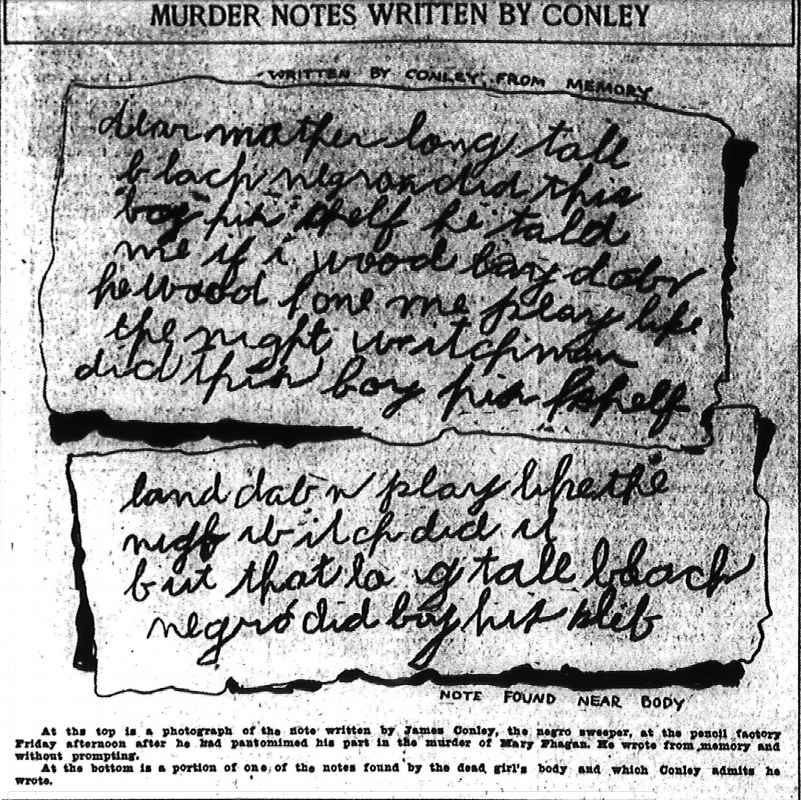 MURDER NOTES WRITTEN BY CONLEY
WRITTEN BY CONLEY FROM MEMORY
dear mother long tall
black negron did this
boy his shelf he told
me if i wood lay down
he wood love me play like
the night writchman
did this boy his shelf
land dab n play like the
nigh witch did it
but that lo g tall black
negro did boy his sleb
NOTE FOUND NEAR BODY
At the top is a photograph of the note written by James Conley, the negro sweeper, at the pencil factory
Friday afternoon after he had pantomimed his part in the murder of Mary Phagan. He wrote from memory and
without prompting.
At the bottom is a portion of one of the notes found by the dead girl's body and which Conley admits he
wrote.